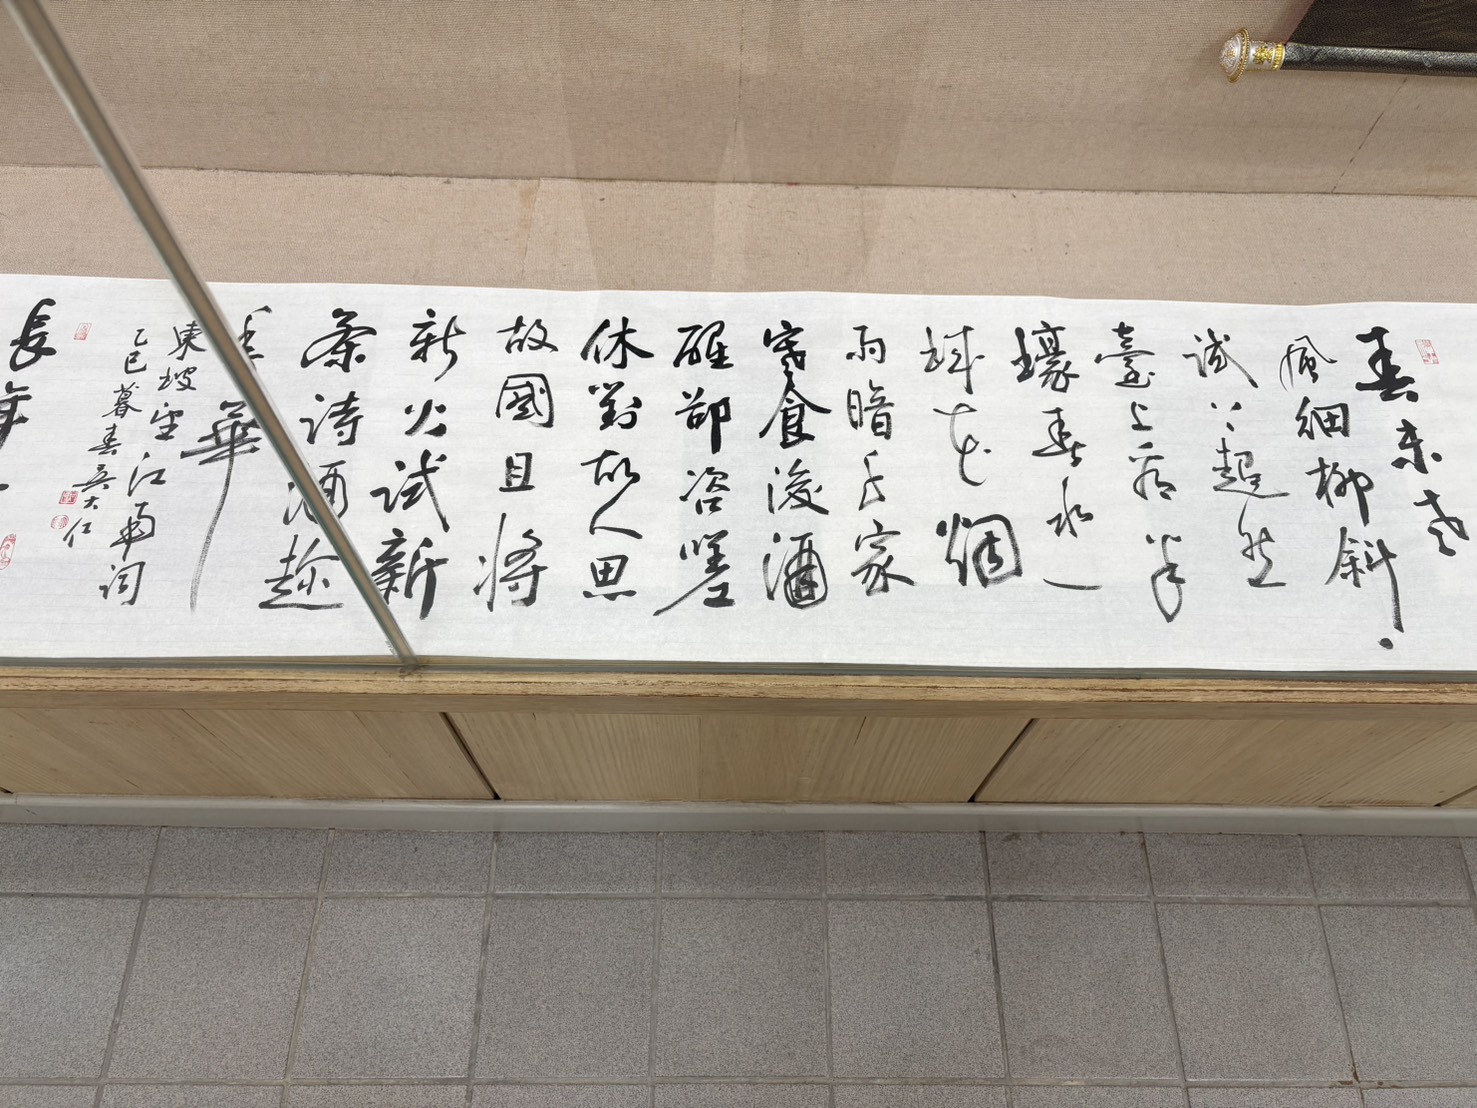 春未老
風細柳斜、
試上超然
臺上看半
壕春水一
城花烟
雨暗千家
寒食後酒
醒卻咨嗟
休對故人思
故國且將
新火試新
茶詩酒趁
年華
東坡望江南詞
乙巳暮春吳大仁
長